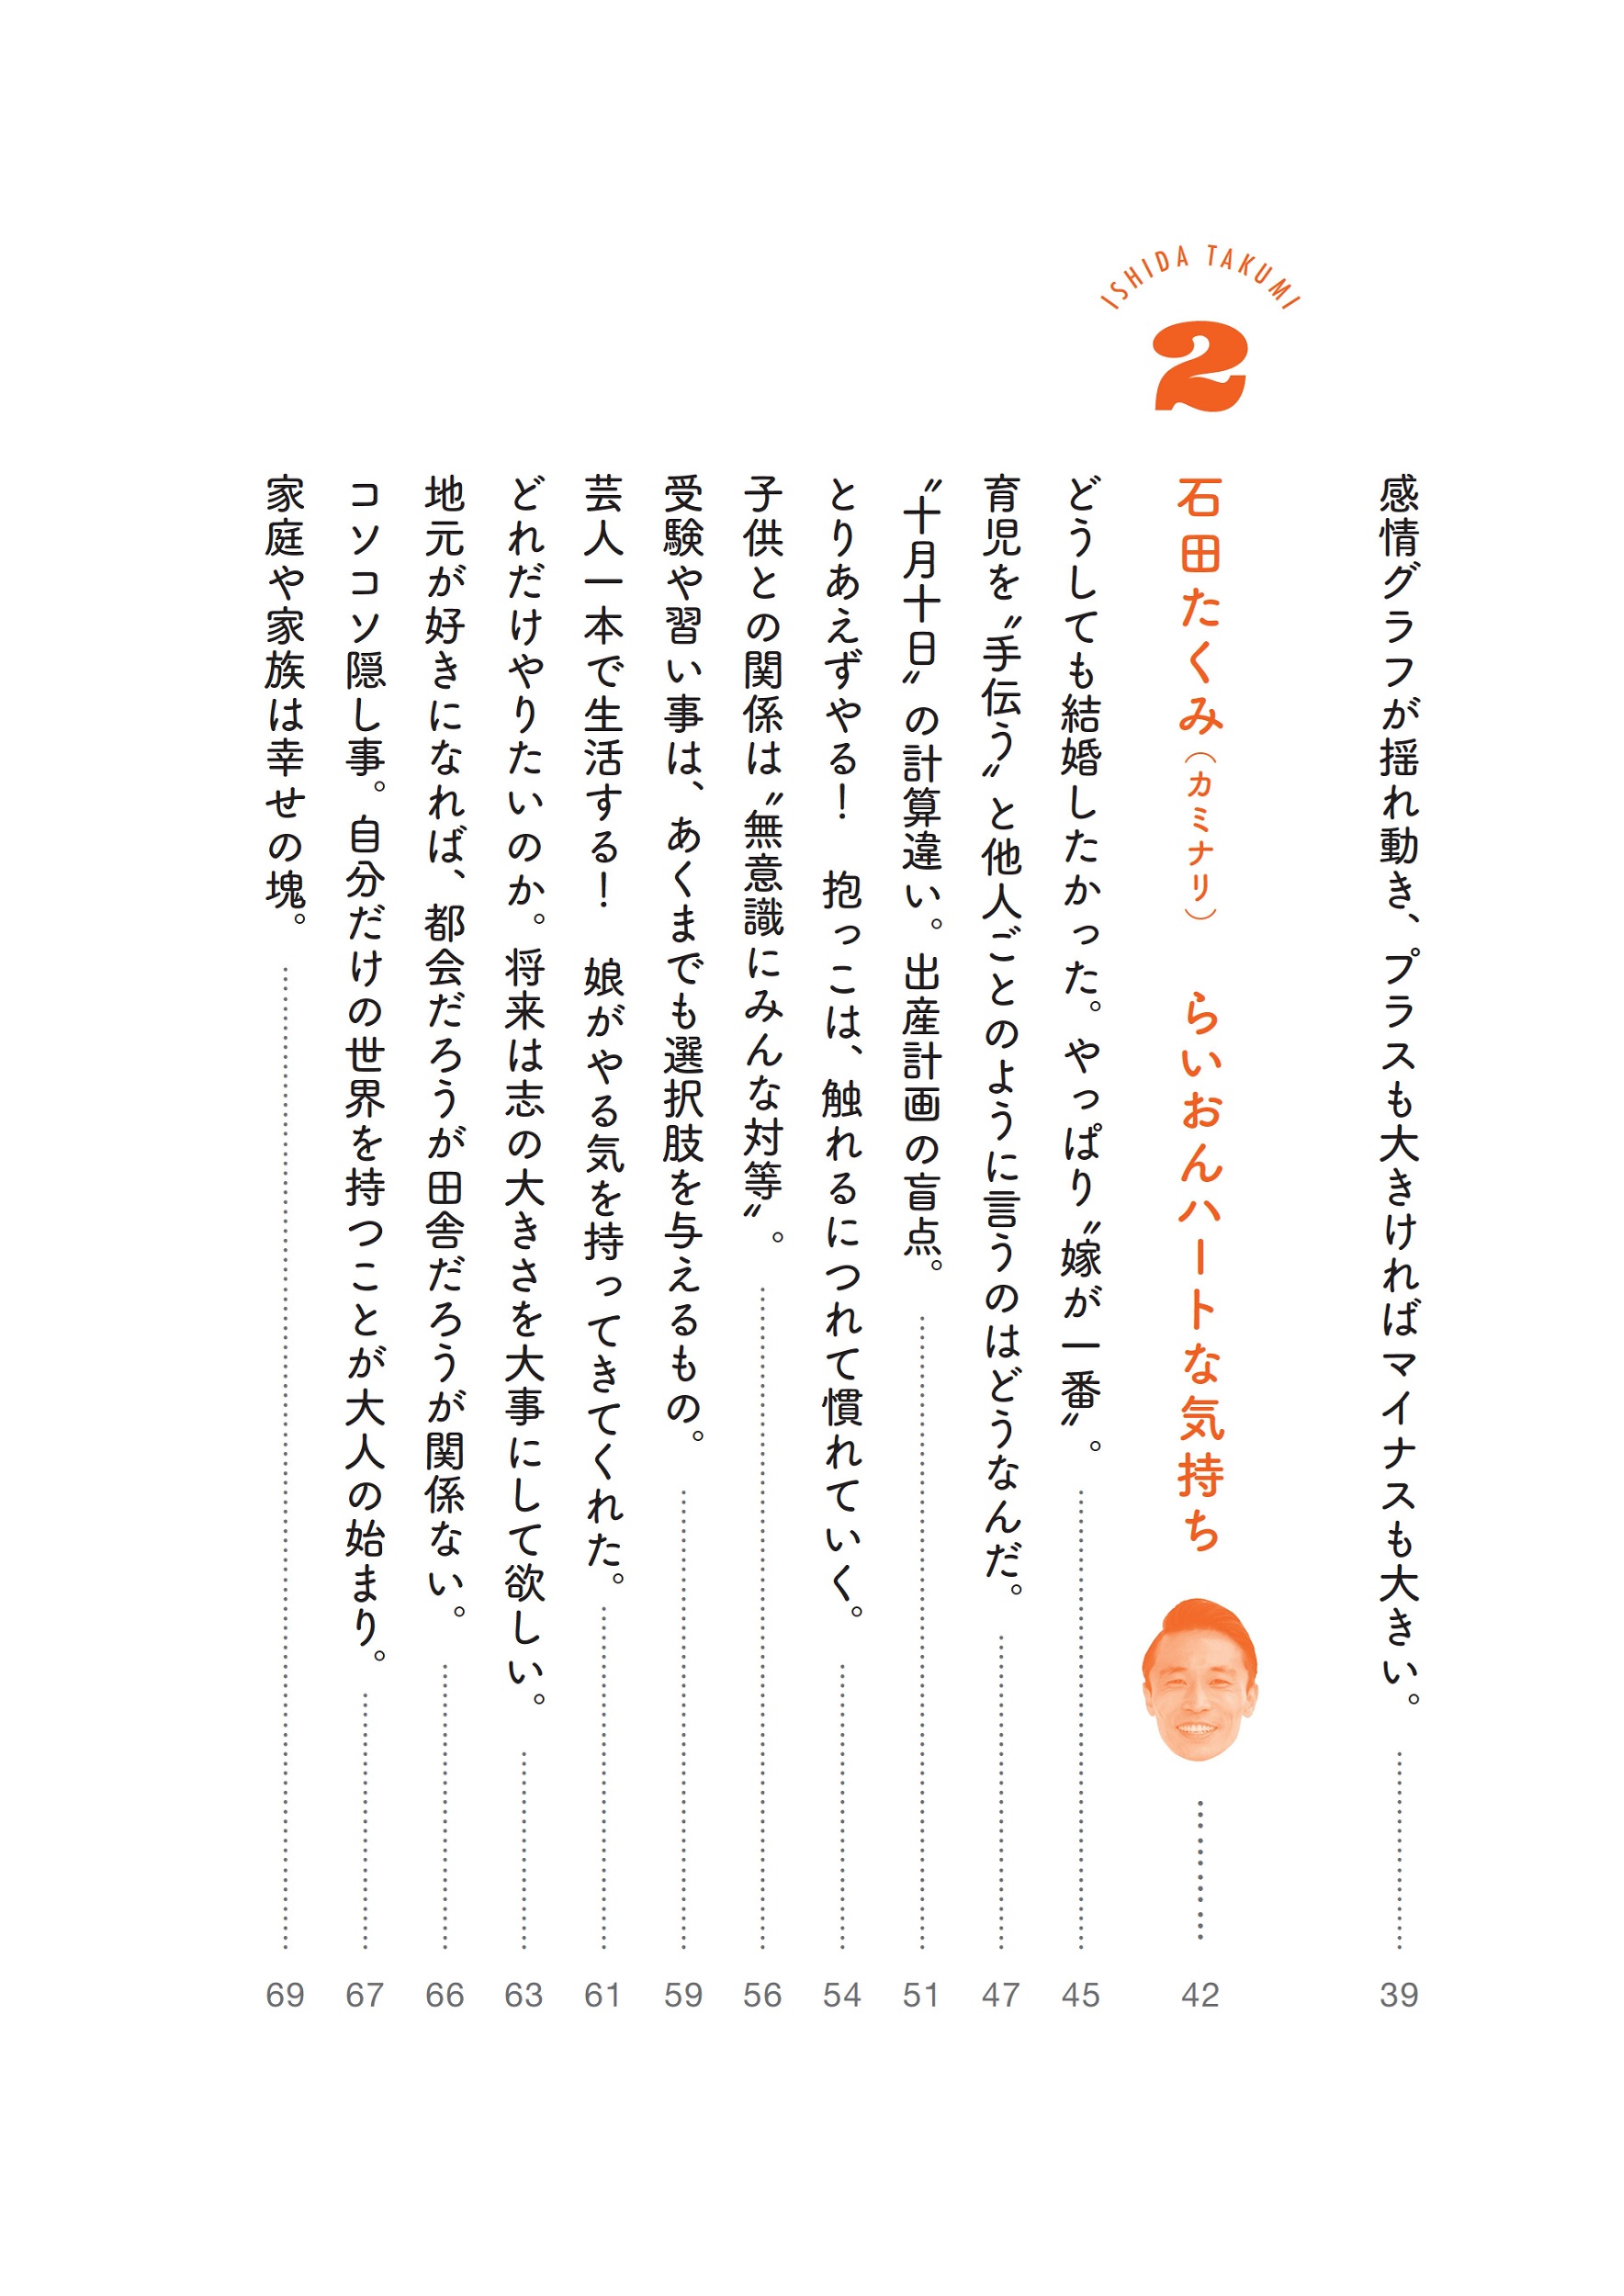 感情グラフが揺れ動き、プラスも大きければマイナスも大きい。 39
ISHIDA TAKUMI
2
石田たくみ（カミナリ） らいおんハートな気持ち 42
どうしても結婚したかった。やっぱり〝嫁が一番〟。 45
育児を〝手伝う〟と他人ごとのように言うのはどうなんだ。 47
〝十月十日〟の計算違い。出産計画の盲点。 51
とりあえずやる！ 抱っこは、触れるにつれて慣れていく。 54
子供との関係は〝無意識にみんな対等〟。 56
受験や習い事は、あくまでも選択肢を与えるもの。 59
芸人一本で生活する！ 娘がやる気を持ってきてくれた。 61
どれだけやりたいのか。将来は志の大きさを大事にして欲しい。 63
地元が好きになれば、都会だろうが田舎だろうが関係ない。 66
コソコソ隠し事。自分だけの世界を持つことが大人の始まり。 67
家庭や家族は幸せの塊。 69